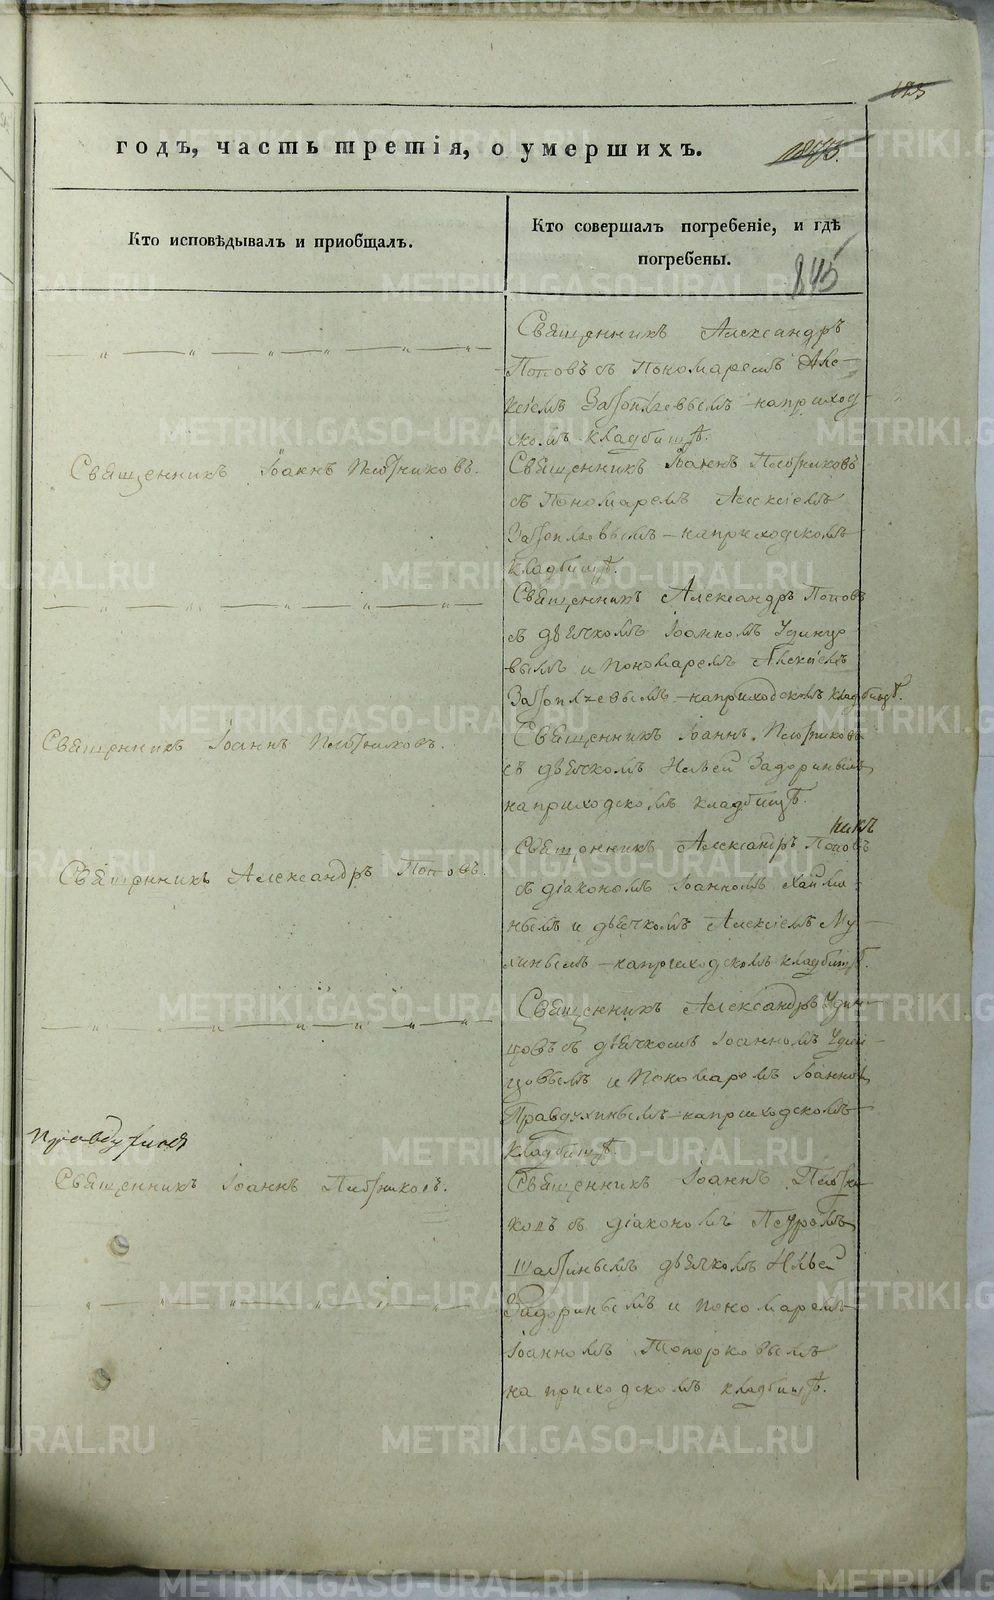 годъ, часть третія, о умершихъ.
845
Кто исповѣдывалъ и приобщалъ.
Кто совершалъ погребеніе, и гдѣ
погребены.
Священникъ Александръ
Поповъ съ Пономаремъ Але-
ксіемъ на приход-
скомъ кладбищѣ.
Священникъ Іоаннъ Плотниковъ.
Священникъ Іоаннъ Плотниковъ
съ Пономаремъ Алексіемъ
на приходскомъ
кладбищѣ.
Священникъ Александръ Поповъ
съ дьячкомъ Іоанномъ Удинцо
вымъ и Пономаремъ Алексіемъ
на приходскомъ кладбищѣ.
Священникъ Іоаннъ Плотниковъ.
Священникъ Іоаннъ Плотниковъ
съ дьячкомъ Ильей Задоринымъ
на приходскомъ кладбищѣ.
Священникъ Александръ Поповъ.
Священникъ Александръ Поповъ
съ діакономъ Іоанномъ
нымъ и дьячкомъ Алексіемъ Му-
хинымъ на приходскомъ кладбищѣ.
Священникъ Александръ Удин-
цовъ съ дьячкомъ Іоанномъ Удин-
цовымъ и Пономаремъ Іоанномъ
Правдухинымъ на приходскомъ
кладбищѣ.
Священникъ Іоаннъ Плотниковъ.
Священникъ Іоаннъ Плотни
ковъ съ діакономъ Петромъ
дьячкомъ Ильей
Задоринымъ и пономаремъ
Іоанномъ Топорковымъ
на приходскомъ кладбищѣ.
METRIKI.GASO-URAL.RU